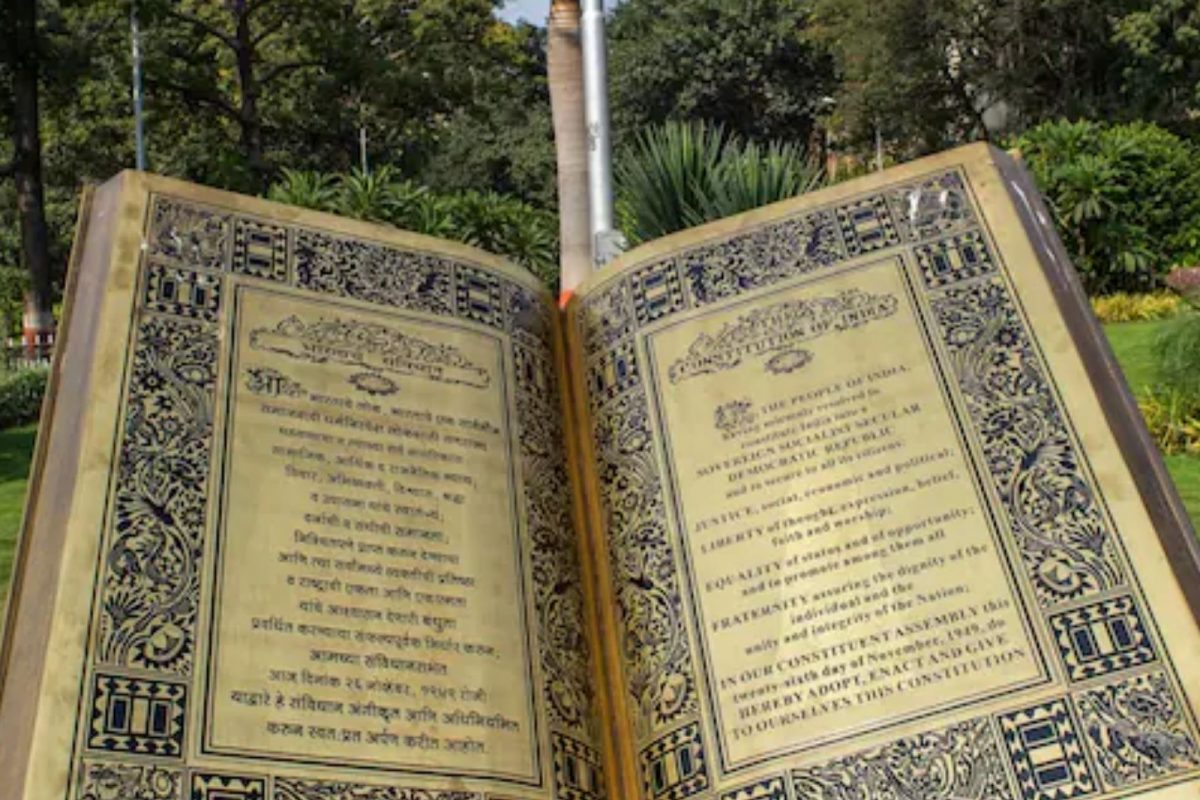 भारताचे संविधान
भारताचे लोक, भारताचे एक सार्वभौम
समाजवादी धर्मनिरपेक्ष लोकशाही गणराज्य
व त्याच्या सर्व नागरिकांस
सामाजिक, आर्थिक व राजनैतिक न्याय,
विचार, अभिव्यक्ती, विश्वास, श्रद्धा
व उपासना यांचे स्वातंत्र्य;
दर्जाची व संधीची समानता,
निश्चितपणे प्राप्त करुन देण्याचा
आणि त्या सर्वांमध्ये व्यक्तीची प्रतिष्ठा
व राष्ट्राची एकता आणि एकात्मता
यांचे आश्वासन देणारी बंधुता
प्रवर्धित करण्याचा संकल्पपूर्वक निर्धार करुन,
आमच्या संविधानसभेत
आज दिनांक २६ नोव्हेंबर, १९४९ रोजी
याद्वारे हे संविधान अंगीकृत आणि अधिनियमित
करुन स्वतःप्रत अर्पण करीत आहोत.
CONSTITUTION OF INDIA
THE PEOPLE OF INDIA,
having solemnly resolved to
constitute India into a
SOVEREIGN SOCIALIST SECULAR
DEMOCRATIC REPUBLIC
and to secure to all its citizens:
JUSTICE, social, economic and political;
LIBERTY of thought, expression, belief,
faith and worship;
EQUALITY of status and of opportunity;
and to promote among them all
FRATERNITY assuring the dignity of the
individual and the
unity and integrity of the Nation;
IN OUR CONSTITUENT ASSEMBLY this
twenty-sixth day of November, 1949, do
HEREBY ADOPT, ENACT AND GIVE
TO OURSELVES THIS CONSTITUTION